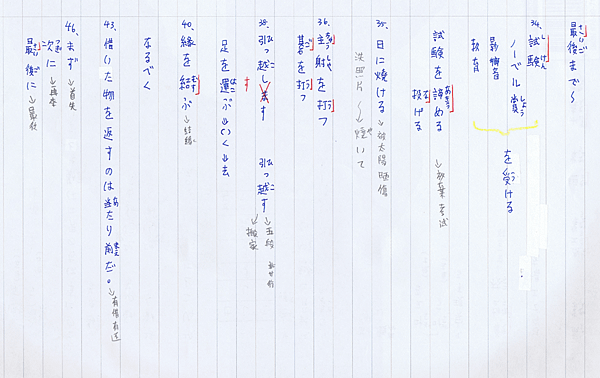 最後まで〜
34. 試験
ノーベル賞
影響
教育
を受ける
試験を諦める
投げる
→放棄考試
35. 日に焼ける→被太陽晒傷
洗照片〜→焼いて
36. 注射を打つ
碁を打つ
38. 引っ越します
す
引っ越す
→五段
→搬家
足を運ぶ→いく→去
40. 縁を結ぶ→結緣
なるべく
43. 借りた物を返すのは当たり前だ。→有借有還
46. まず→首先
次に→再來
最後に→最後